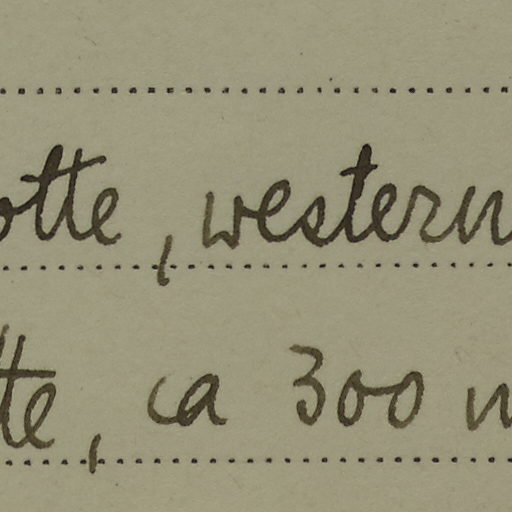 otte, western
tte, ca 300 m